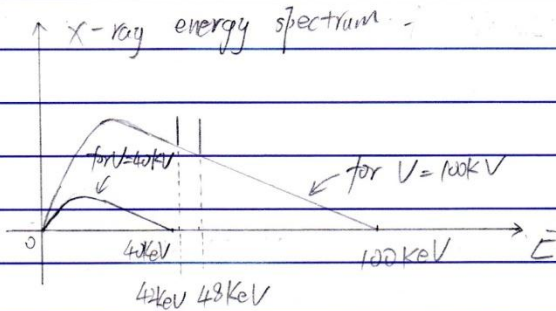 X-ray energy spectrum.
for V=40kV
for V=100kV
0
40keV
100keV
E
42keV 48keV